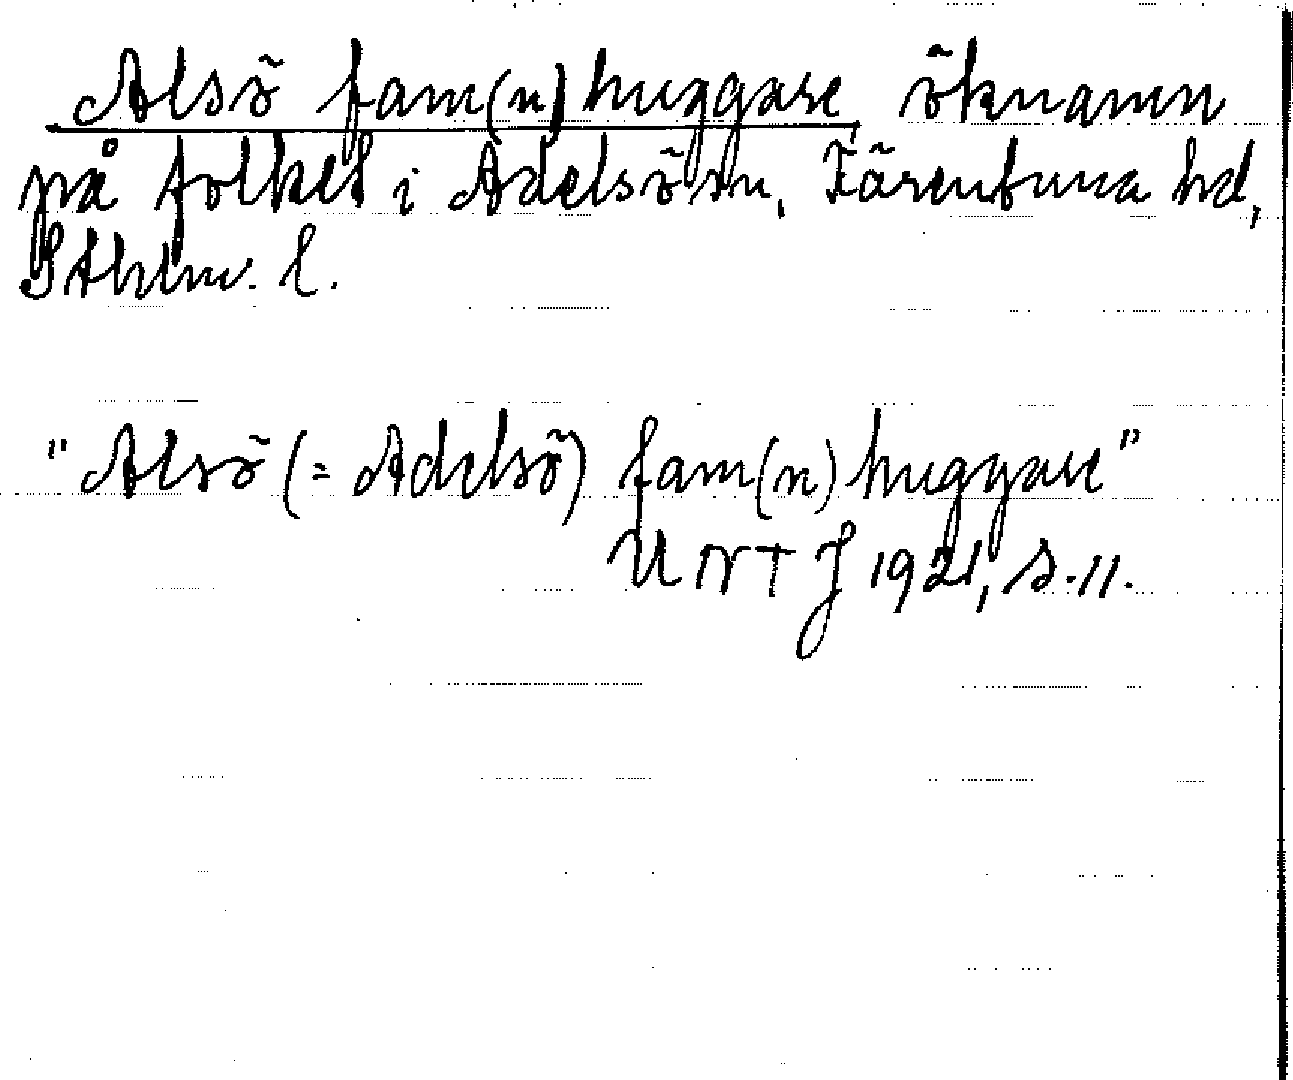 Alsö fam(n)huggare, öknamn
på folket i Adelsö sn, Färentuna hd,
Sthlm. l.
"Alsö (= Adelsö) fam(n)huggare"
UNTJ 1921, s. 11.